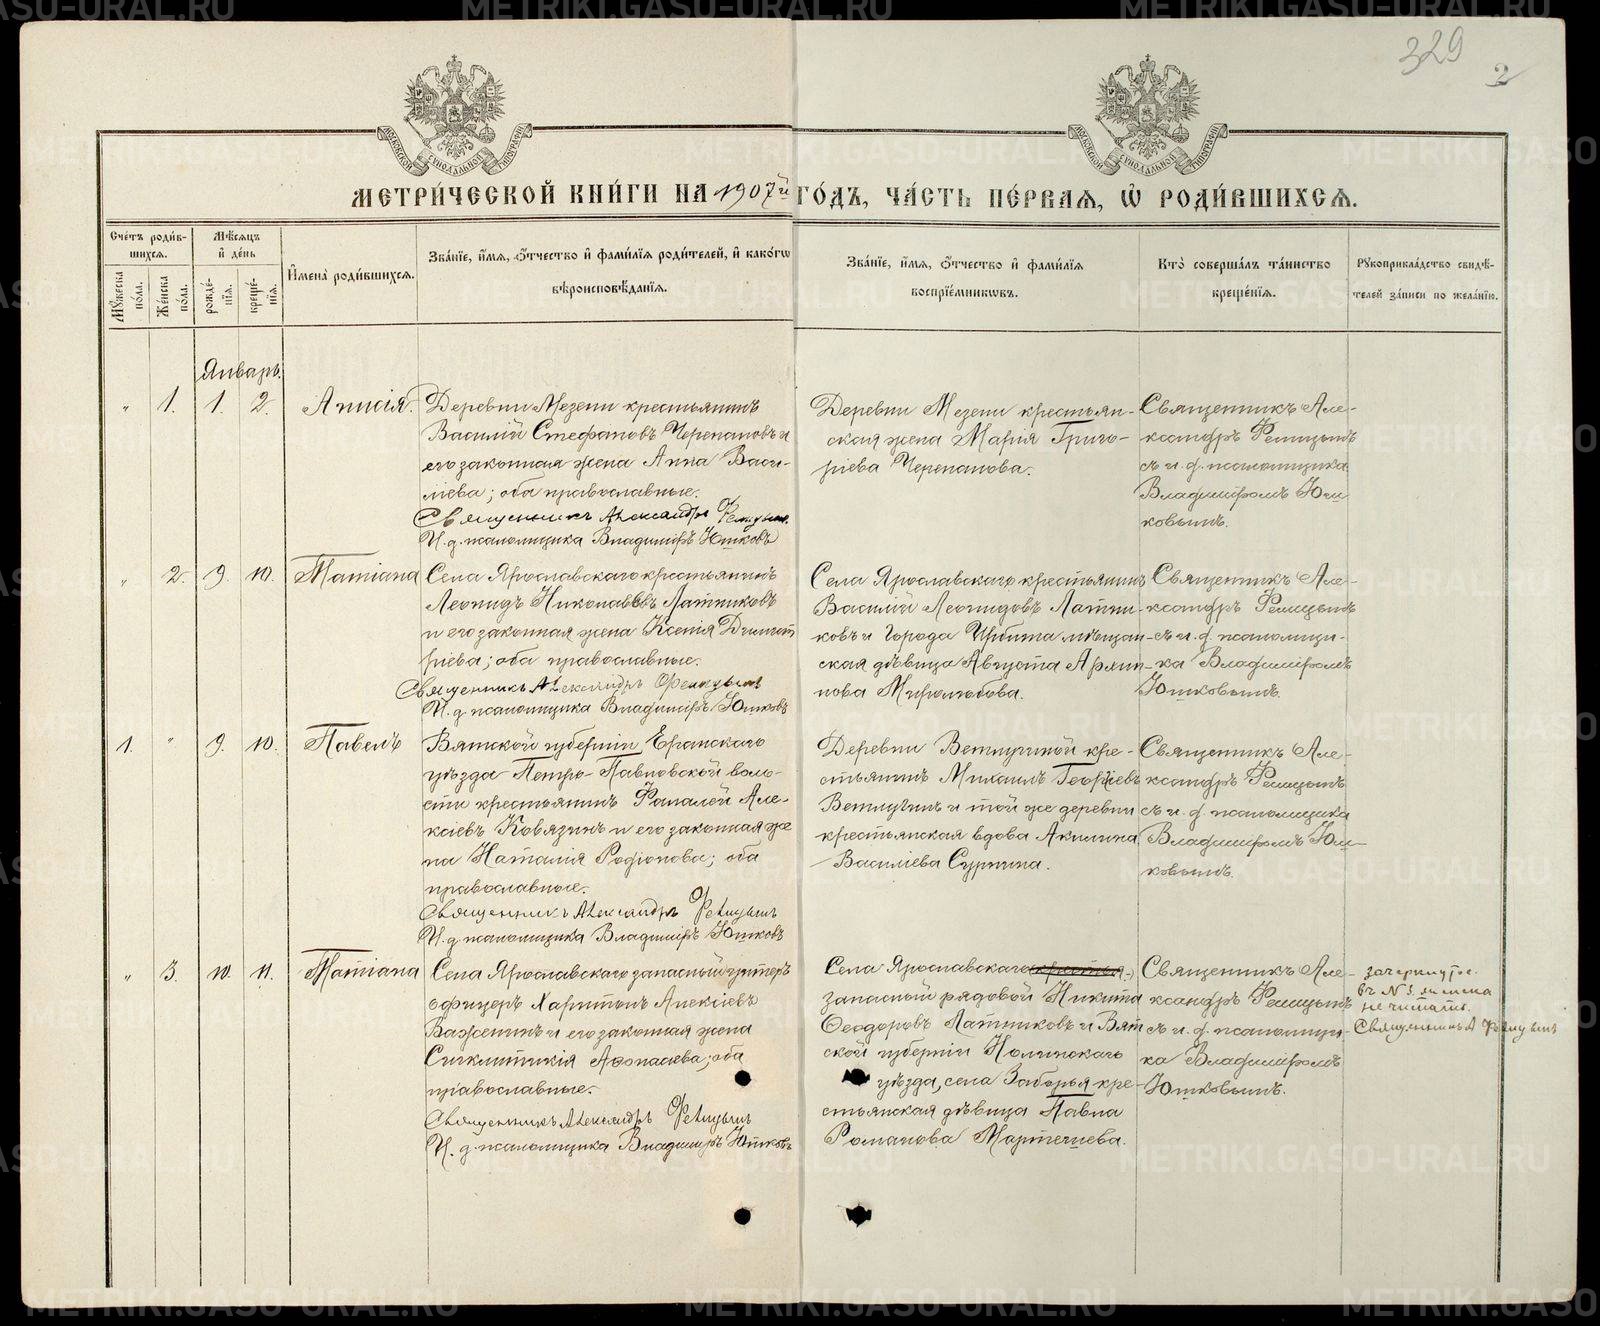 329
2
МОСКОВСКОЙ СУНОДАЛЬНОЙ ТИПОГРАФІИ
МОСКОВСКОЙ СУНОДАЛЬНОЙ ТИПОГРАФІИ
МЕТРИ́ЧЕСКОЙ КНИ́ГИ НА 1907й ГО́ДЪ, ЧА́СТЬ ПЕ́РВАЯ, Ѡ РОДИ́ВШИХСЯ.
Сче́тъ роди́в-
шихся.
Мꙋ́жеска по́ла.
Же́нска по́ла.
Мѣ́сяцъ
и́ де́нь
рожде́-
нїя.
креще́-
нїя.
И́мена̀ роди́вшихся.
Зва́нїе, и́мя, ѻ́тчество и́ фами́лїя роди́телей, и́ како́гѡ
вѣроисповѣ́данїя.
Зва́нїе, и́мя, ѻ́тчество и́ фами́лїя
воспрїе́мникѡвъ.
Кто̀ соверша́лъ та́инство
креще́нїя.
Рꙋкоприкла́дство свидѣ́-
телей за́писи по жела́нїю.
Январь.
" 1. 1. 2. Анисія.
Деревни Мезени крестьянинъ
Василій Стефановъ Черепановъ и
его законная жена Анна Васи-
ліева; оба православные.
Священникъ Александръ
И. д. псаломщика Владиміръ Юшковъ
Деревни Мезени крестьян-
ская жена Марія Григо-
ріева Черепанова.
Священникъ Але-
ксандръ
съ и. д. псаломщика
Владиміромъ Юш
ковымъ.
" 2. 9. 10. Татіана
Села Ярославскаго крестьянинъ
Леонидъ Николаевъ Латниковъ
и его законная жена Ксенія Димит
ріева; оба православные.
Священникъ Александръ
И. д. псаломщика Владиміръ Юшковъ
Села Ярославскаго крестьянинъ
Василій Леонидовъ Латни-
ковъ и Города Ирбита мѣщан-
ская дѣвица Августа Архип-
пова Миролюбова.
Священникъ Але-
ксандръ
съ и. д. псаломщи-
ка Владиміромъ
Юшковымъ.
1. " 9. 10. Павелъ
Вятской губерніи, Еранскаго
уѣзда Петро-Павловской воло-
сти крестьянинъ Фаналей Але-
ксіевъ Ковязинъ и его законная же
на Наталія Родіонова; оба
православные.
Священникъ Александръ
И. д. псаломщика Владиміръ Юшковъ
Деревни Ветлугиной кре-
стьянинъ Михаилъ Георгіевъ
Ветлугинъ и той же деревни
крестьянская вдова Акилина
Василіева Сургина.
Священникъ Але-
ксандръ
съ и. д. псаломщика
Владиміромъ Юш-
ковымъ.
" 3. 10. 11. Татіана
Села Ярославскаго запасный унтеръ
офицеръ Харитонъ Алексіевъ
Важенинъ и его законная жена
Синклитикія Аѳонасіева; оба
православные.
Священникъ Александръ
И. д. псаломщика Владиміръ Юшковъ
Села Ярославскаго
запасный рядовой Никита
Ѳеодоровъ Латниковъ и Вят
ской губерніи Нолинскаго
уѣзда, села Заборья кре-
стьянская дѣвица Павла
Романова Мартенева.
Священникъ Але-
ксандръ
съ и. д. псаломщи-
ка Владиміромъ
Юшковымъ.
зачеркнутое
въ № 3
не читать.
Священникъ А
METRIKI.GASO-URAL.RU